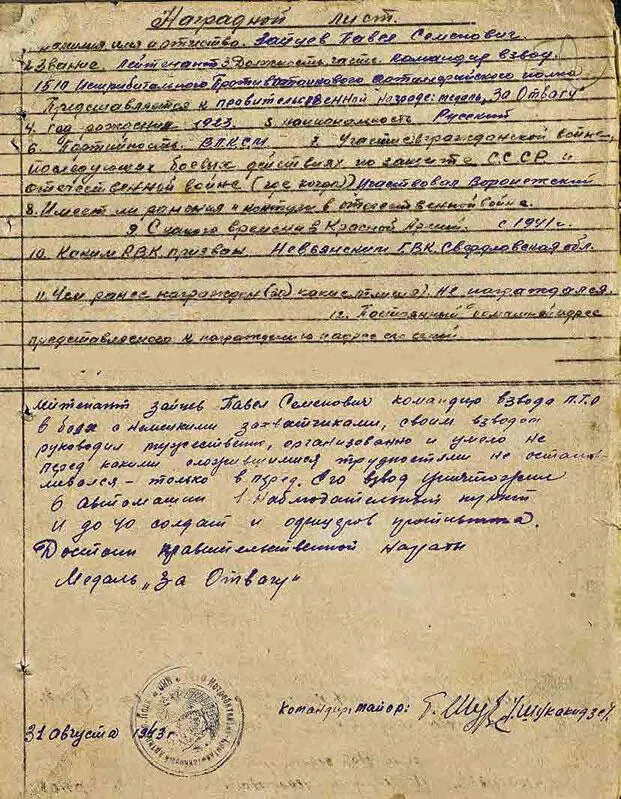 Наградной лист.
1. Фамилия имя и отчество. Зайцев Павел Семенович.
2. Звание. Лейтенант 3. Должность, часть. Командир взвод.
1510 Истребительного Противотанкового Артиллерийского полка
Представляется к правительственной награде: медаль „За Отвагу"
4. год рождения 1923. 5. национальность Русский
6. Партийность. ВЛКСМ 7. Участие в гражданской войне,
последующих боевых действиях по защите СССР и
отечественной войне (где когда) Участвовал Воронежский
8. Имеет ли ранения и контузии в отечественной войне.
9. С какого времени в Красной Армии. с 1941 г.
10. Каким РВК призван Невьянским ГВК. Свердловская обл.
11. Чем ранее награжден (за какие отличия). Не награждался.
12. Постоянный домашний адрес
представляемого к награждению и адрес его семьи
Лейтенант Зайцев Павел Семенович командир взвода П.Т.О
в боях с немецкими захватчиками, своим взводом
руководил мужественно, организованно и умело не
перед какими сложившимися трудностями не остана-
вливался – только вперед. Его взвод уничтожил
6 автомашин 1 наблюдательный пункт
и до 40 солдат и офицеров противника.
Достоин правительственной награды
Медаль „За Отвагу"
Командир, майор:
31 августа 1943 г.